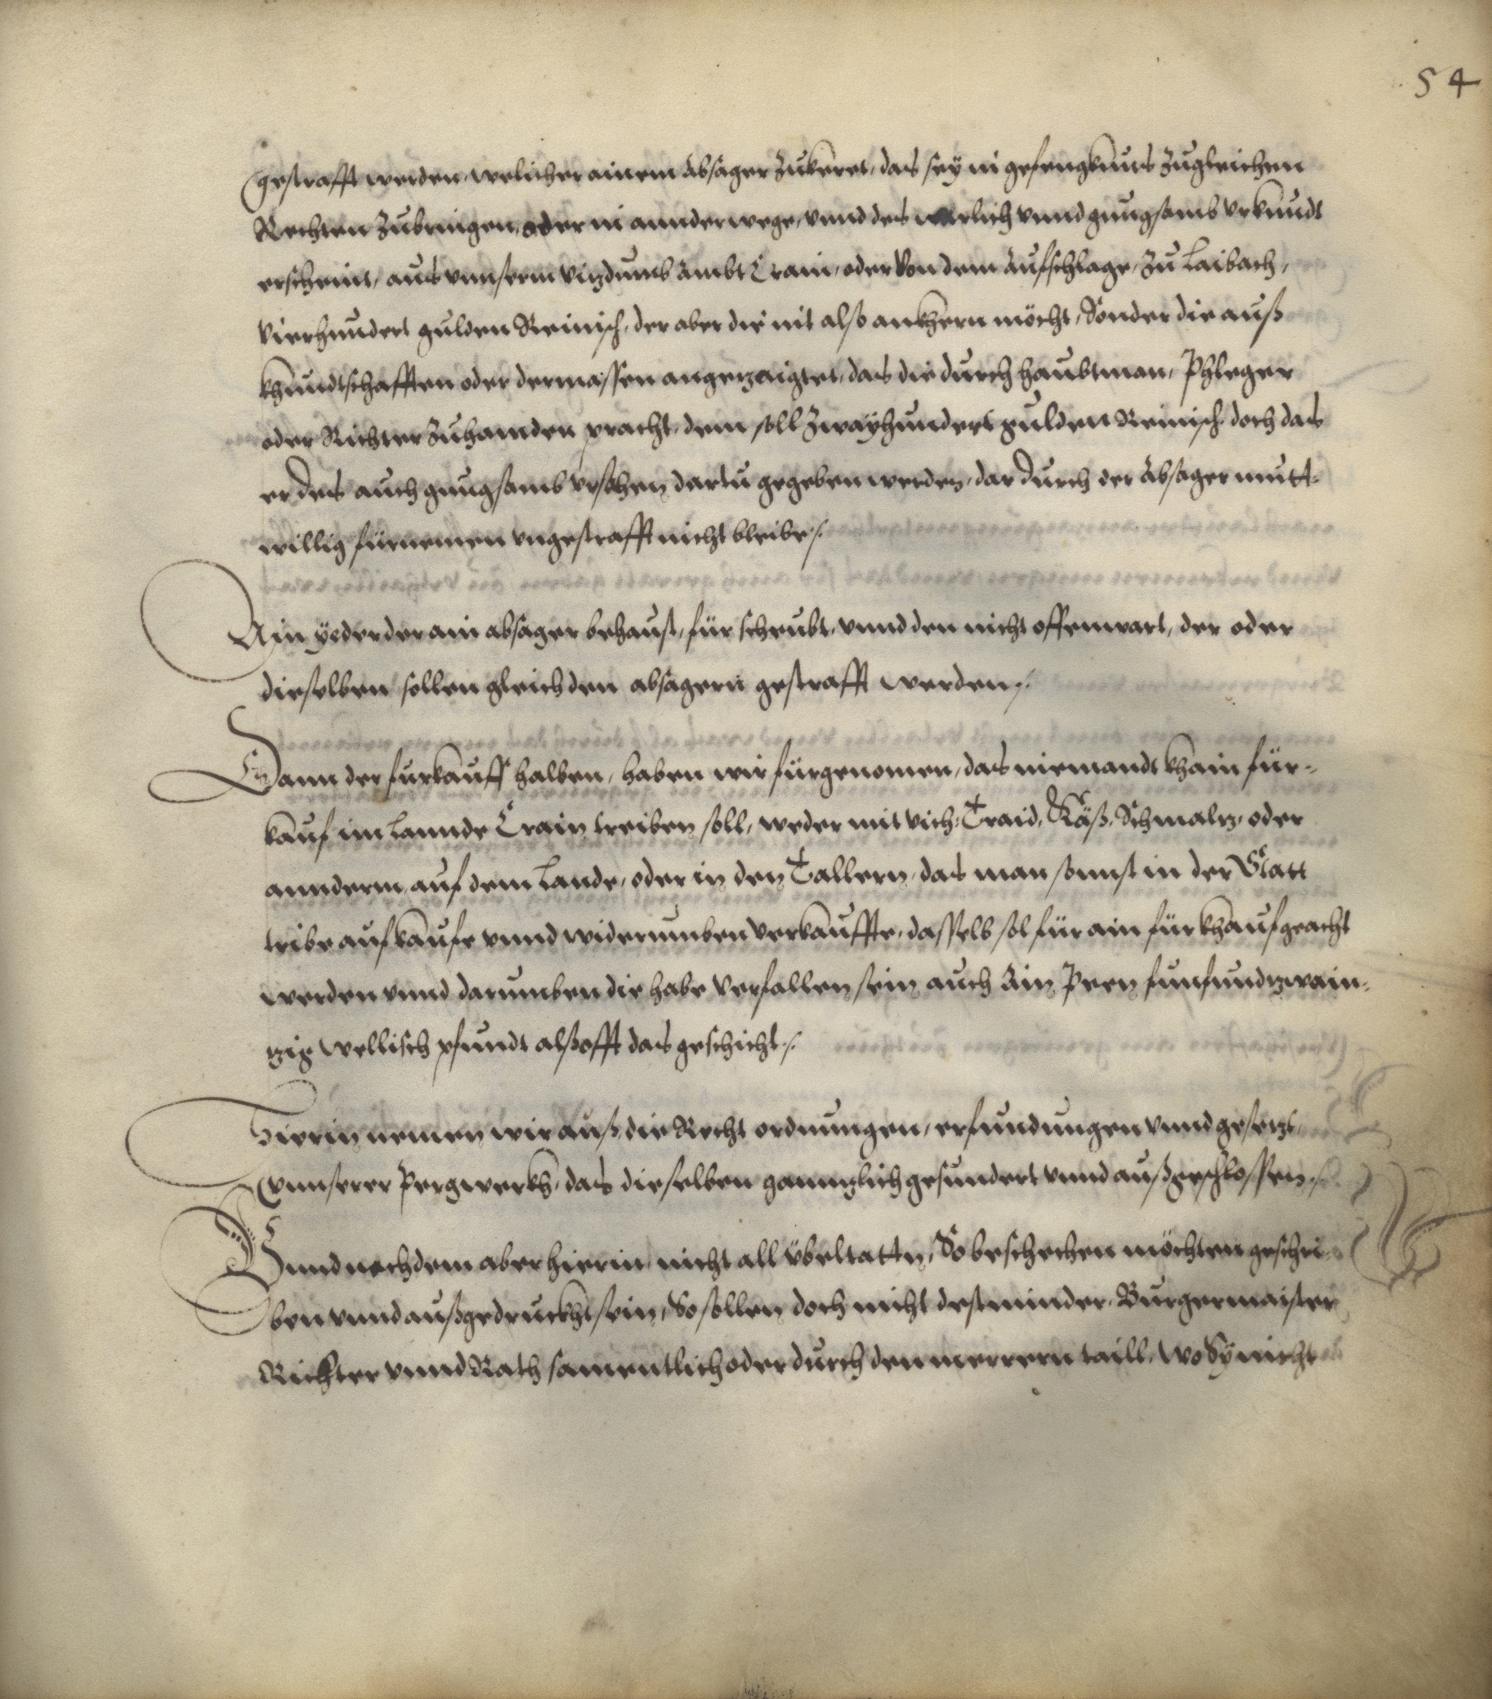 54
gestrafft werden, welicher ainem Absager zukeret, das sey in gefengknus zugleichem
Rechten zubringen, oder in annder wege, vnnd des warlich vnnd gnugsamb vrkundt
erscheint, aus vnnserm vizdumb Ambt Crain, oder von dem Aufschlage, zu Laibach,
vierhundert gulden Reinisch, der aber die nit also ankhern möcht, Sonder die auß
khundtschafften oder dermassen angezaigtet, das die durch haubtman, Phleger
oder Richter zuhannden pracht, dem soll zwayhundert gulden Reinisch doch das
er des auch gnugsamb vrsachen dartu gegeben werden, dardurch der Absager mutt-
willig fürnemen vngestrafft nicht bleibe /.
Ain yeder der ain absager behaust, für scheubt, vnnd den nicht offenwart, der oder
dieselben sollen gleich den absagern gestrafft werden /.
Dann der furkauff halben, haben wir fürgenomen, das niemandt khain für-
kauf im Lannde Crain treiben soll, weder mit vich, Traid, Käß, Schmalz, oder
annderm, auf dem Lande, oder in den Tallern, das man sonnst in der Statt
tribe aufkaufe vnnd widerumben verkauffte, dasselb sol für ain fürkhauf geacht
werden vnnd darumben die habe verfallen sein auch Ain Peen funfundzwain-
zig wellisch pfundt alßofft das geschicht /.
Hierin nemen wir auß die Recht ordnungen, erfundungen vnnd gesetzt
vnnserer Pergwerkh, das dieselben gannzlich gesundert vnnd außgeschlossen /.
Vnnd nachdem aber hierin nicht all übeltattn, So beschechen möchten geschri-
ben vnnd außgedruckht sein, So sollen doch nicht destminder, Burgermaister
Richter vnnd Rath samentlich oder durch den merrern taill, wo Sy nicht